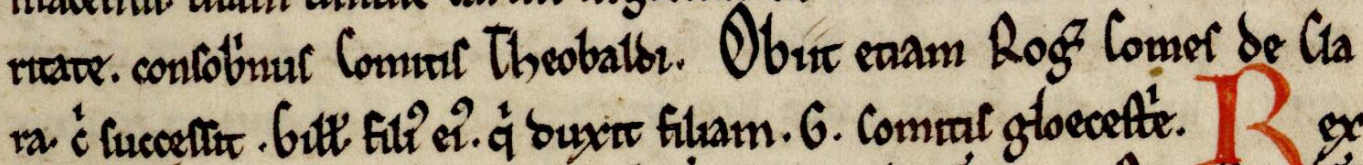 ritate. consob'nus Comitis Theobaldi. Obiit etiam Rogꝰ Comes de Cla
ra. c̍ successit. Gill̵. filiꝰ eiꝰ. q̍ duxit filiam. G. Comitis gloecest̍e. Rex